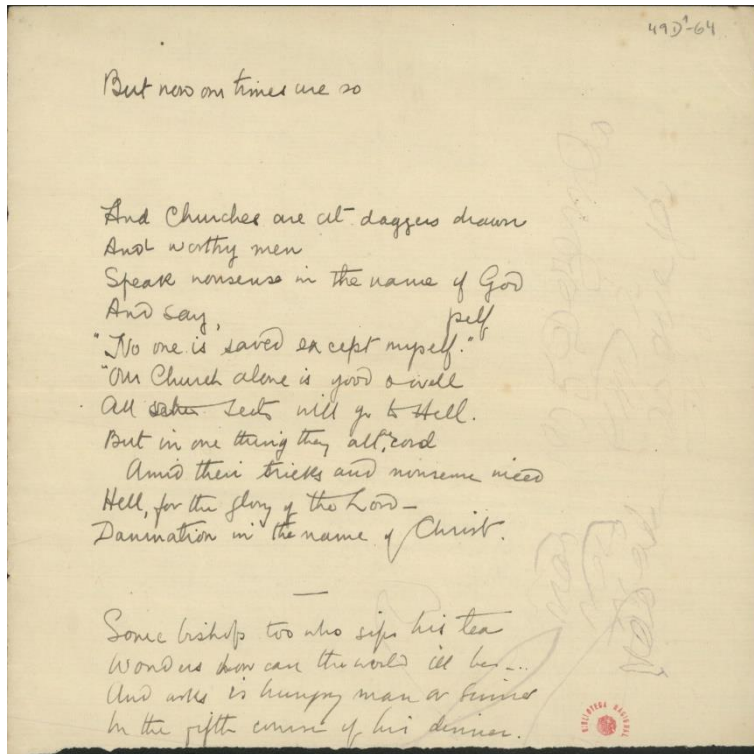 49D¹-64
But now our times are so
And Churches are at daggers drawn
And worthy men
Speak nonsense in the name of God
And say, pelf
"No one is saved except myself."
"Our Church alone is good & well
All sects will go to Hell.
But in one thing they all
Amid their tricks and nonsense
Hell, for the glory of the Lord –
Damnation in the name of Christ.
Some bishop too who sips his tea
Wonders how can the world ill be...
And asks is hungry man or sinner
In the fifth course of his dinner.
BIBLIOTECA NACIONAL